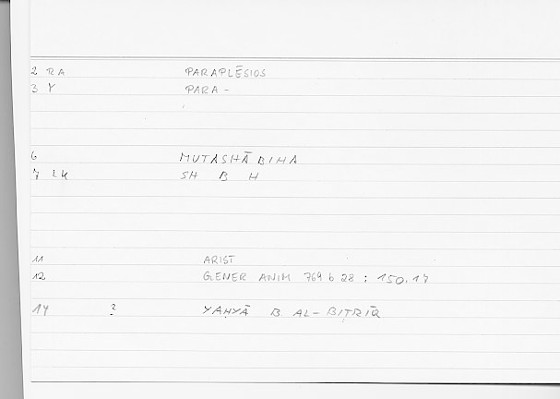 2 RA PARAPLĒSIOS
3 Y PARA -
6 MUTASHĀBIHA
7 SH B H
11 ARIST
12 GENER ANIM 769 b 28 : 150.17
14 ? YAḤYĀ B AL-BIṬRĪQ